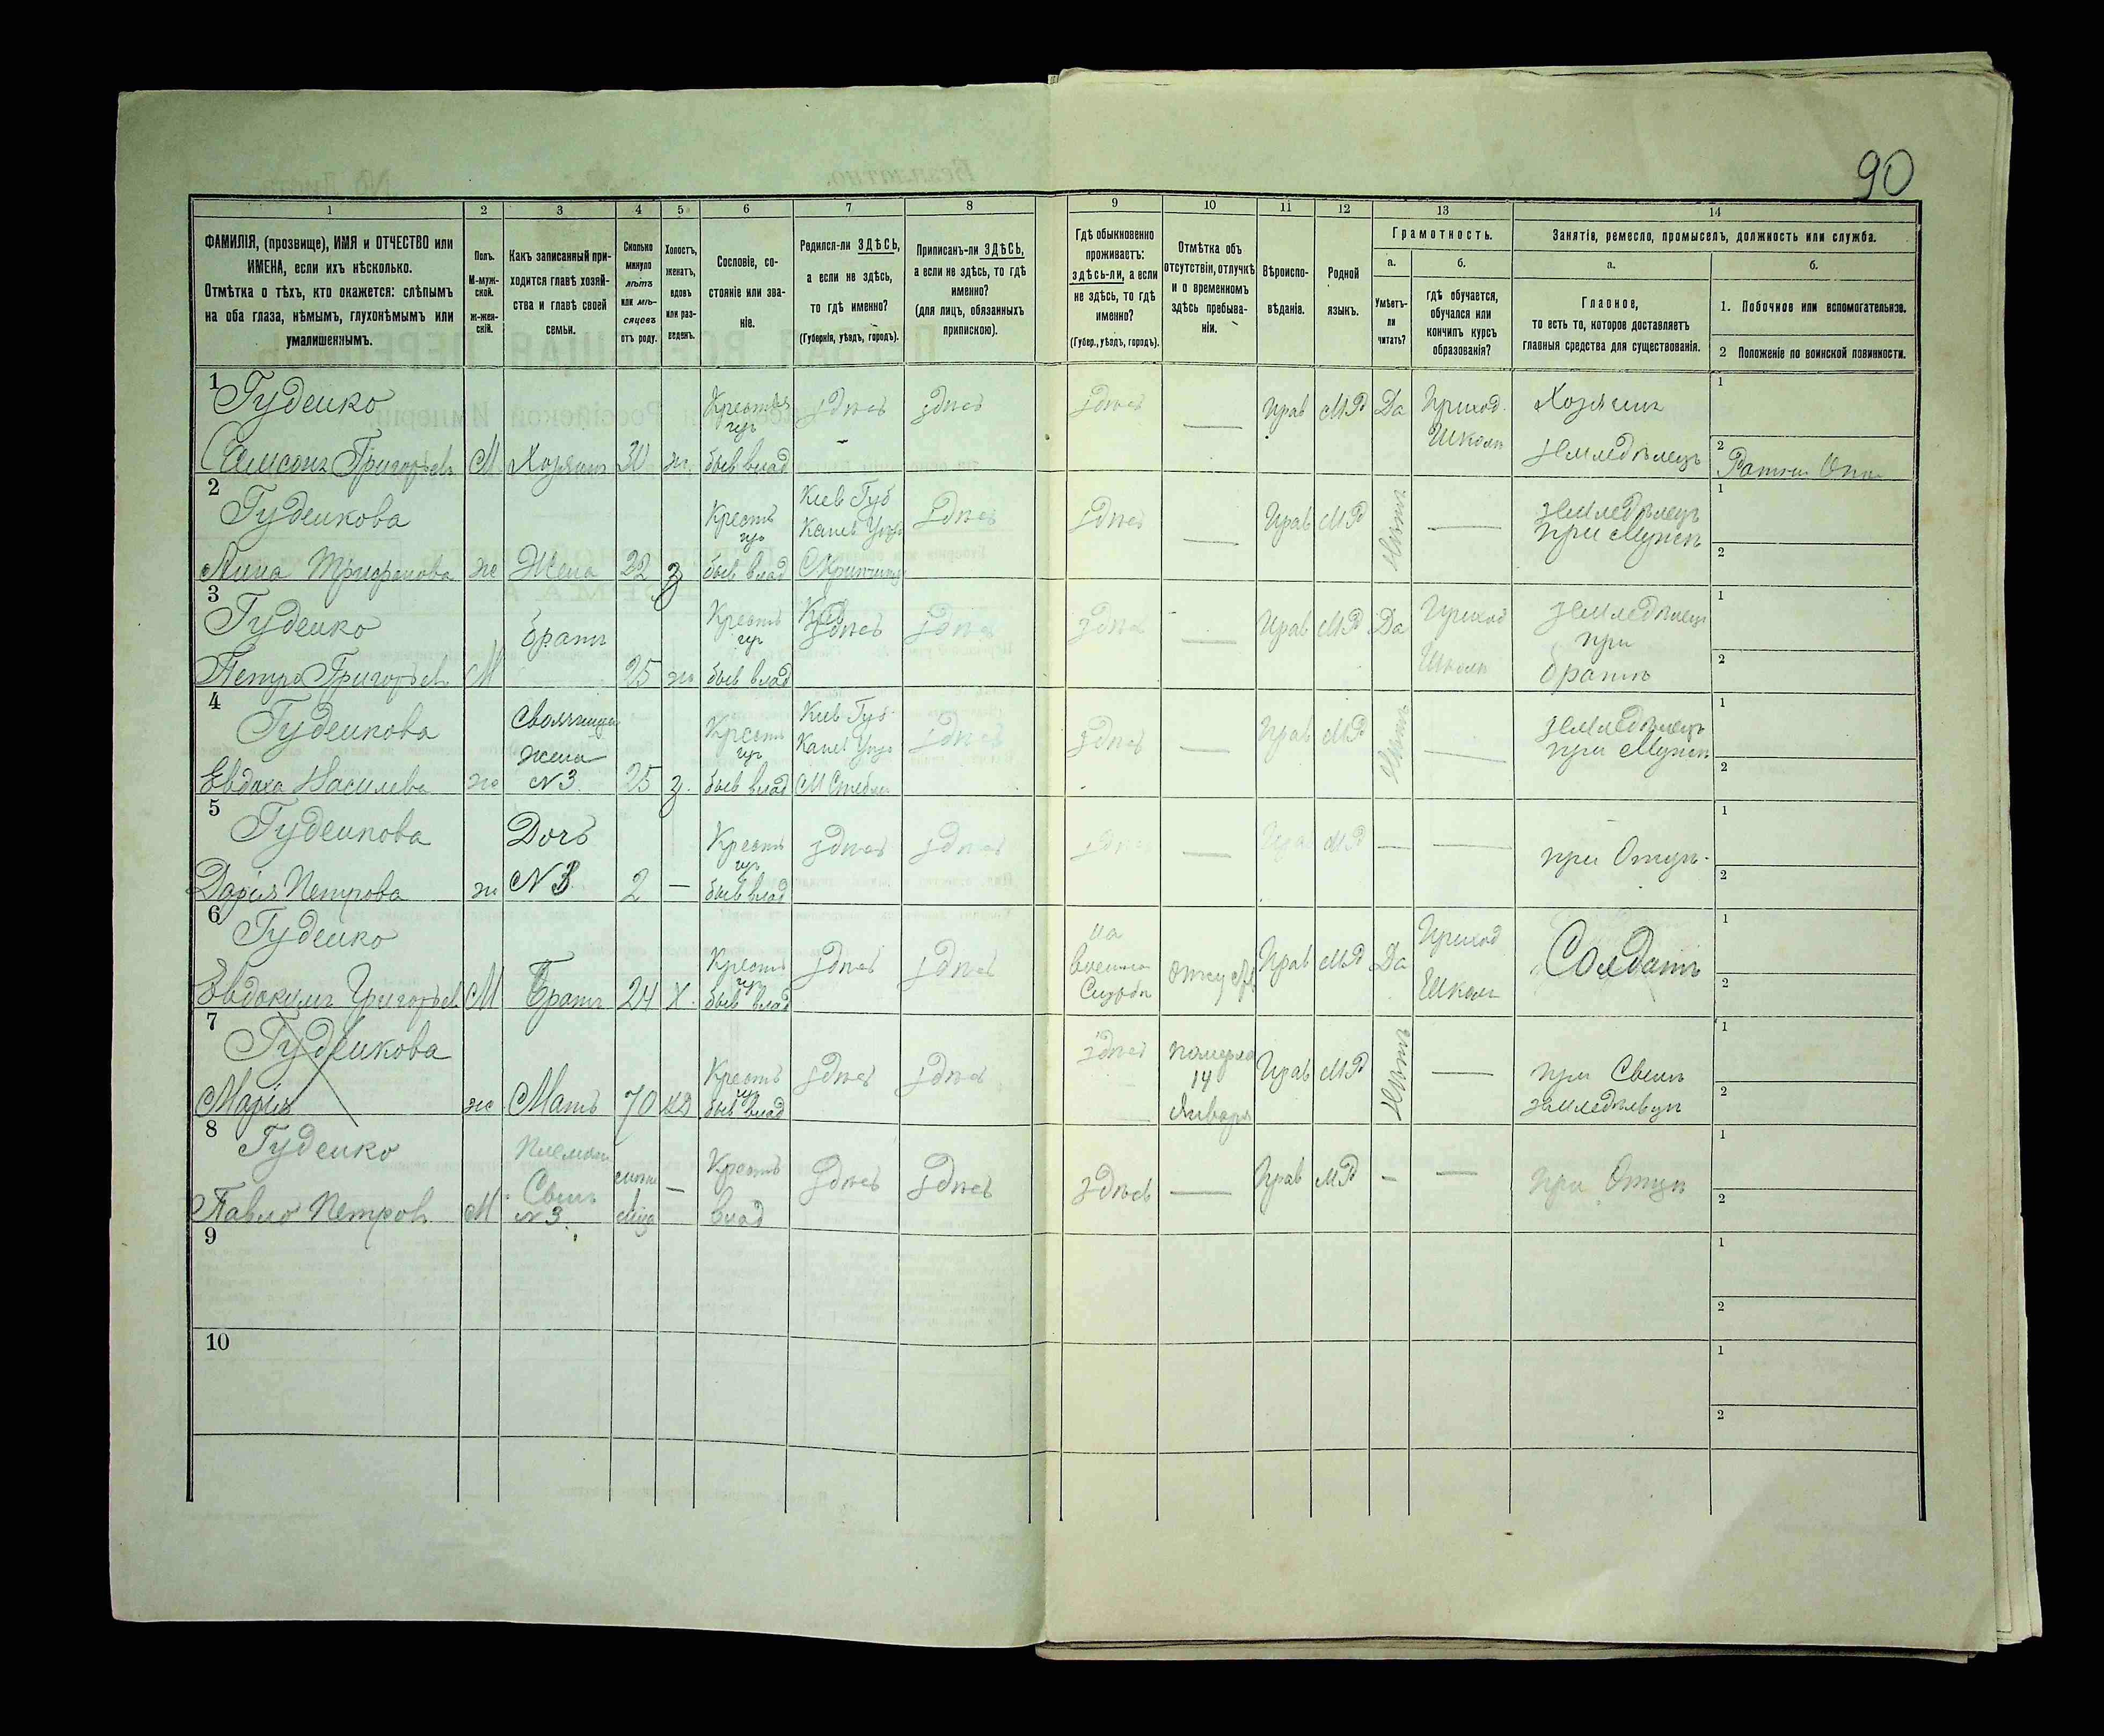 90
1 2 3 4 5 6 7 8 9 10 11 12 13 14
ФАМИЛІЯ, (прозвище), ИМЯ и ОТЧЕСТВО или
ИМЕНА, если ихъ нѣсколько.
Отмѣтка о тѣхъ, кто окажется: слѣпымъ
на оба глаза, нѣмымъ, глухонѣмымъ или
умалишеннымъ.
Полъ.
М-муж-
ской.
ж-жен-
скій.
Какъ записанный при-
ходится главѣ хозяй-
ства и главѣ своей
семьи.
Сколько
минуло
лѣтъ
или мѣ-
сяцевъ
отъ роду.
Холостъ,
женатъ,
вдовъ
или раз-
веденъ.
Сословіе, со-
стояніе или зва-
ніе.
Родился-ли ЗДѢСЬ,
а если не здѣсь,
то гдѣ именно?
(Губернія, уѣздъ, городъ).
Приписанъ-ли ЗДѢСЬ,
а если не здѣсь, то гдѣ
именно?
(для лицъ, обязанныхъ
припискою).
Гдѣ обыкновенно
проживаетъ:
здѣсь-ли, а если
не здѣсь, то гдѣ
именно?
(Губер., уѣздъ, городъ).
Отмѣтка объ
отсутствіи, отлучкѣ
и о временномъ
здѣсь пребыва-
ніи.
Вѣроиспо-
вѣданіе.
Родной
языкъ.
Грамотность.
а.
Умѣетъ-
ли
читать?
б.
гдѣ обучается,
обучался или
кончилъ курсъ
образованія?
Занятіе, ремесло, промыселъ, должность или служба.
а.
Главное,
то есть то, которое доставляетъ
главныя средства для существованія.
б.
1. Побочное или вспомогательное.
2 Положеніе по воинской повинности.
1
Гуденко
Самсонъ Григорьев
М
Хозяинъ
30
ж.
Крестья
быв влад
здѣсь
здѣсь
здѣсь
—
Прав
МР
Да
Приход.
Школѣ
Хозяинъ
земледѣлецъ
1
2
Ратник
2
Гуденкова
Анна Трифонова
же
Жена
22
з
Крестъ
быв влад
Киев Губ
Канев
здѣсь
здѣсь
—
Прав
МР
Нѣтъ
—
земледѣлецъ
при Мужѣ
1
2
3
Гуденко
Петро Григорьев
М
братъ
25
же
Крестъ
быв влад
здѣсь
здѣсь
здѣсь
—
Прав
МР
Да
Приход
Школѣ
земледѣлец
при
братѣ
1
2
4
Гуденкова
Евдоха Василева
же
Своячница
жена
№3.
25
з.
Крестъ
быв влад
Киев Губ
Канев
М Стебл
здѣсь
здѣсь
—
Прав
МР
Нѣтъ
—
земледѣлецъ
при Мужѣ
1
2
5
Гуденкова
Дарія Петрова
же
Дочъ
№ 3.
2
—
Крестъ
быв влад
здѣсь
здѣсь
здѣсь
—
Прав
МР
—
—
при Отцѣ.
1
2
6
Гуденко
Евдокимъ Григорьев
М
Братъ
24
Х.
Крестъ
быв влад
здѣсь
здѣсь
на
Военной
Службѣ
Прав
МР
Да
Приход
Школѣ
Солдатъ
1
2
7
Гуденкова
Марія
же
Мать
70
вд
Крестъ
быв влад
здѣсь
здѣсь
здѣсь
померла
14
Января
Прав
МР
Нѣтъ
—
при Сынѣ
земледѣльцѣ
1
2
8
Гуденко
Павло Петров
М
Племян
Сынъ
№ 3.
—
Крестъ
влад
здѣсь
здѣсь
здѣсь
—
Прав
МР
—
—
при Отцѣ
1
2
9
1
2
10
1
2